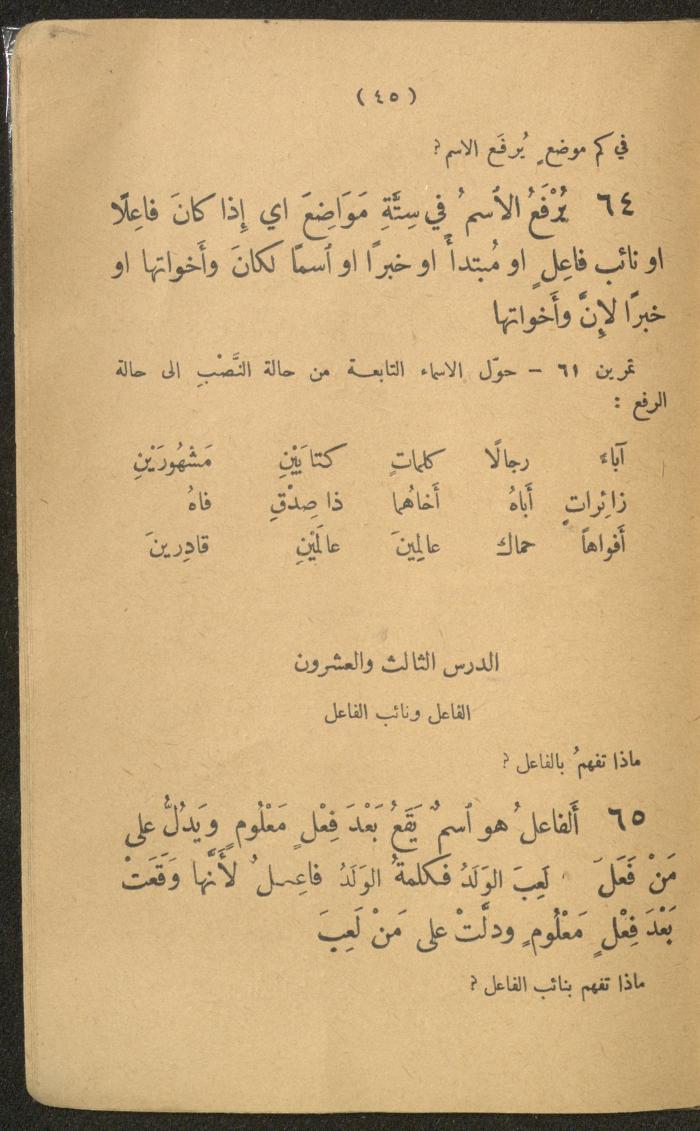 ( ٤٥ )
في كم موضعٍ يُرفَع الاسم ?
٦٤ يُرْفَعُ الاَسمُ في سِتَّةِ مَوَاضِعَ اي إِذا كانَ فاعِلًا
او نائب فاعِلٍ او مُبتدأً او خبرًا او اَسمًا لكانَ وأَخواتها او
خبرًا لإِنَّ وأَخواتها
تمرين ٦١ – حوّل الاسماء التابعة من حالة النَّصْبِ الى حالة
الرفع :
آباءً رجالًا كلماتٍ كتابَيْنِ مَشهُورَيْنِ
زائراتٍ أَباهُ أَخاهُما ذا صِدْقٍ فاهُ
أَفواهاً حماك عالِمِينَ عالَمَيْنِ قادِرينَ
الدرس الثالث والعشرون
الفاعل ونائب الفاعل
ماذا تفهمُ بالفاعل ?
٦٥ أَلفاعلُ هو اَسمٌ يَقَعُ بَعْدَ فِعْلٍ مَعْلُومٍ ويَدُلُّ على
مَنْ فَعَلَ لَعِبَ الوَلَدُ فكلمةُ الوَلَدُ فاعِلٌ لأَنَّها وَقَعَتْ
بَعْدَ فِعْلٍ مَعْلُومٍ ودلَّتْ على مَنْ لَعِبَ
ماذا تفهم بنائب الفاعل ?